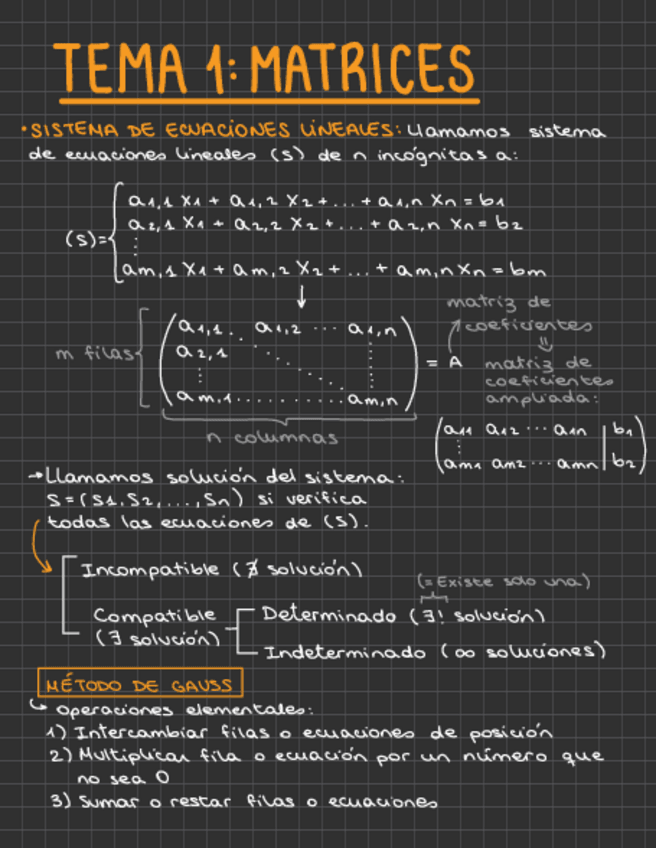 TEMA 1: MATRICES
· SISTEMA DE ECUACIONES LINEALES: Llamamos sistema
de ecuaciones lineales (S) de n incógnitas a:
a₁,₁ x₁ + a₁,₂ x₂ + ... + a₁,n xn = b₁
a₂,₁ x₁ + a₂,₂ x₂ + ... + a₂,n xn = b₂
(S)= {
⋮
am,₁ x₁ + am,₂ x₂ + ... + am,n xn = bm
↓
m filas
a₁,₁ . a₁,₂ ... a₁,n
a₂,₁
⋮
am,₁ .......... am,n
n columnas
= A
matriz de
coeficientes
⇓
matriz de
coeficientes
ampliada:
a₁₁ a₁₂ ... a₁n | b₁
⋮
am₁ am₂ ... amn | b₂
→ Llamamos solución del sistema:
S=(S₁,S₂,...,Sn) si verifica
todas las ecuaciones de (S).
Incompatible (∄ solución)
(= Existe solo una)
Compatible
(∃ solución)
Determinado (∃! solución)
Indeterminado (∞ soluciones)
MÉTODO DE GAUSS
↳ Operaciones elementales:
1) Intercambiar filas o ecuaciones de posición
2) Multiplicar fila o ecuación por un número que
no sea 0
3) Sumar o restar filas o ecuaciones